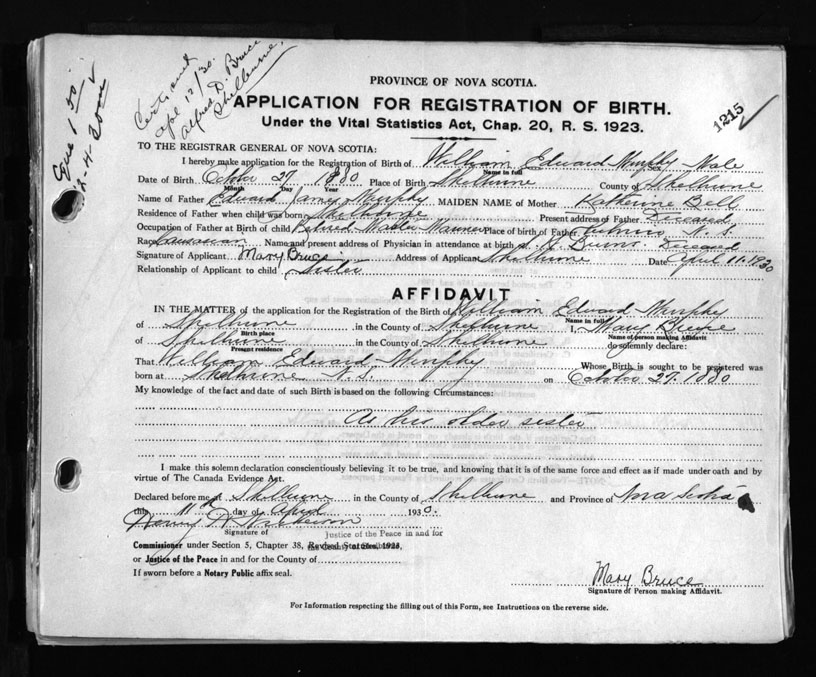 Cert. sent
Apl 12/30.
Alfred D. Bruce
Shelburne,
PROVINCE OF NOVA SCOTIA.
APPLICATION FOR REGISTRATION OF BIRTH.
1215
Under the Vital Statistics Act, Chap. 20, R. S. 1923.
TO THE REGISTRAR GENERAL OF NOVA SCOTIA:
I hereby make application for the Registration of Birth of William Edward Murphy Sex Male
Name in full
Date of Birth October 27 1880 Place of Birth Shelburne County of Shelburne
Month Day Year
Name of Father Edward James Murphy MAIDEN NAME of Mother Katherine Bell
Residence of Father when child was born Shelburne Present address of Father Deceased
Occupation of Father at Birth of child Retired Master Mariner Place of Birth of Father N. S.
Race Name and present address of Physician in attendance at birth Deceased
Signature of Applicant Mary Bruce Address of Applicant Shelburne Date April 11. 1930
Relationship of Applicant to child Sister
AFFIDAVIT
IN THE MATTER of the application for the Registration of the Birth of William Edward Murphy
Name in full
of Shelburne in the County of Shelburne I, Mary Bruce
Birth place Name of person making Affidavit
of Shelburne in the County of Shelburne do solemnly declare:
Present residence
That William Edward Murphy Whose Birth is sought to be registered was
born at Shelburne N. S. on October 27. 1880
My knowledge of the fact and date of such Birth is based on the following Circumstances:
As his older sister
I make this solemn declaration conscientiously believing it to be true, and knowing that it is of the same force and effect as if made under oath and by
virtue of The Canada Evidence Act.
Declared before me at Shelburne in the County of Shelburne and Province of Nova Scotia
this 11th day of April 1930.
Signature of Justice of the Peace in and for
Commissioner under Section 5, Chapter 38, Revised Statutes, 1923,
or Justice of the Peace in and for the County of
If sworn before a Notary Public affix seal.
Mary Bruce
Signature of Person making Affidavit.
For Information respecting the filling out of this Form, see Instructions on the reverse side.